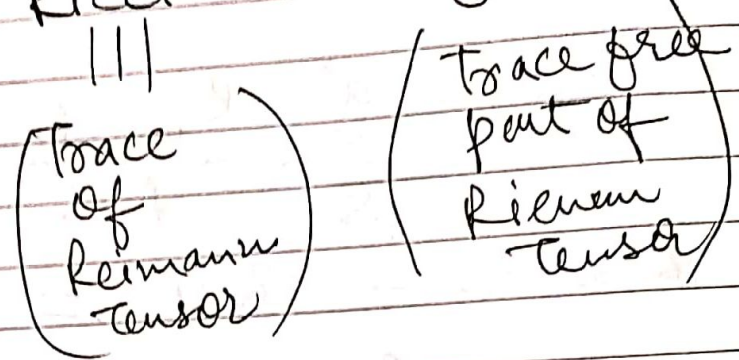 |||
Trace
of
Reimann
Tensor
Trace free
part of
Riemann
Tensor